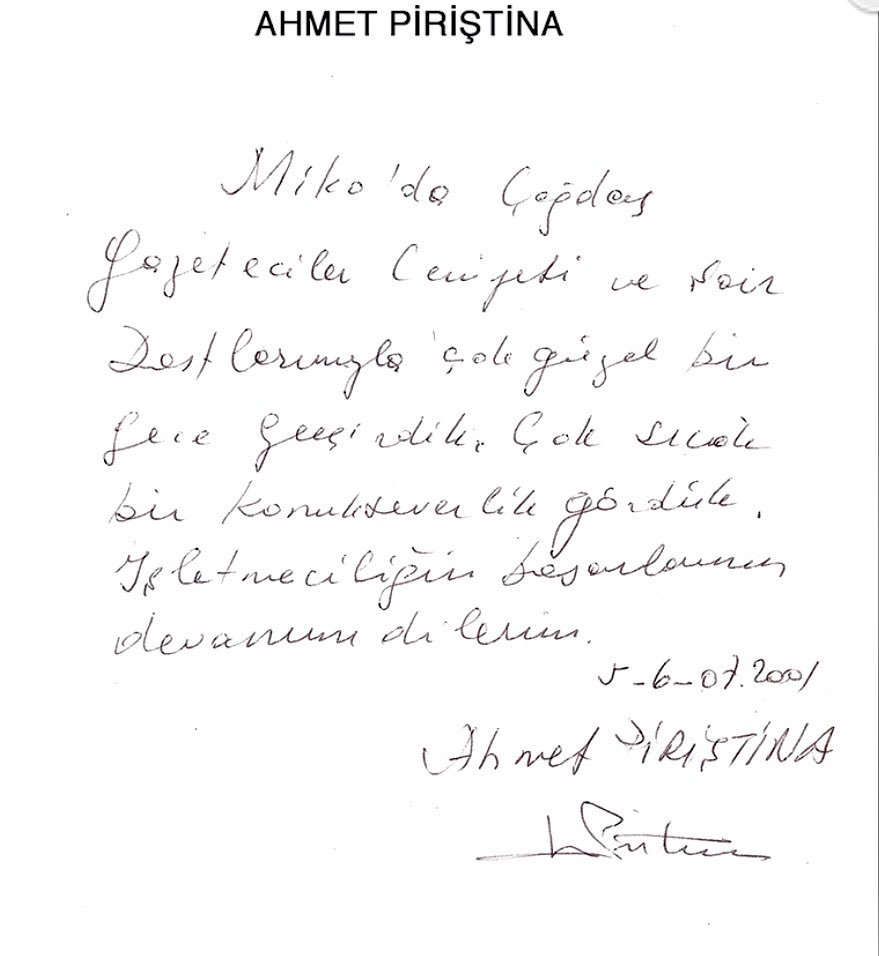 AHMET PİRİŞTİNA
Miko'da Çağdaş
Gazeteciler Cemiyeti ve
Dostlarımızla çok güzel bir
Gece Geçirdik. Çok sıcak
bir konukseverlik gördük.
İşletmeciliğin başarılarının
devamını dilerim.
5-6-07.2001
Ahmet PİRİŞTİNA